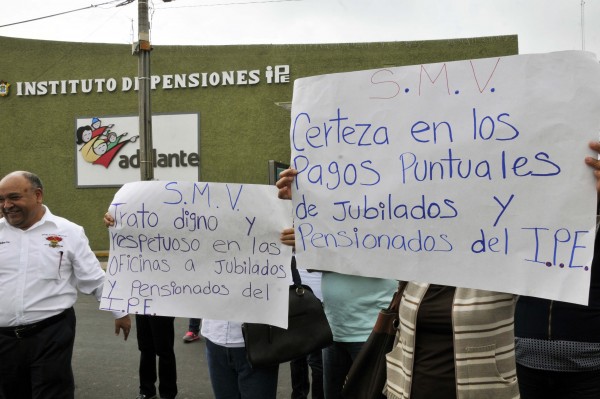 INSTITUTO DE PENSIONES IPE
adelante
S.M.V
Trato digno y
respetuoso en las
Oficinas a Jubilados
y Pensionados del
I.P.E.
S.M.V.
Certeza en los
Pagos Puntuales
de Jubilados y
Pensionados del I.P.E.